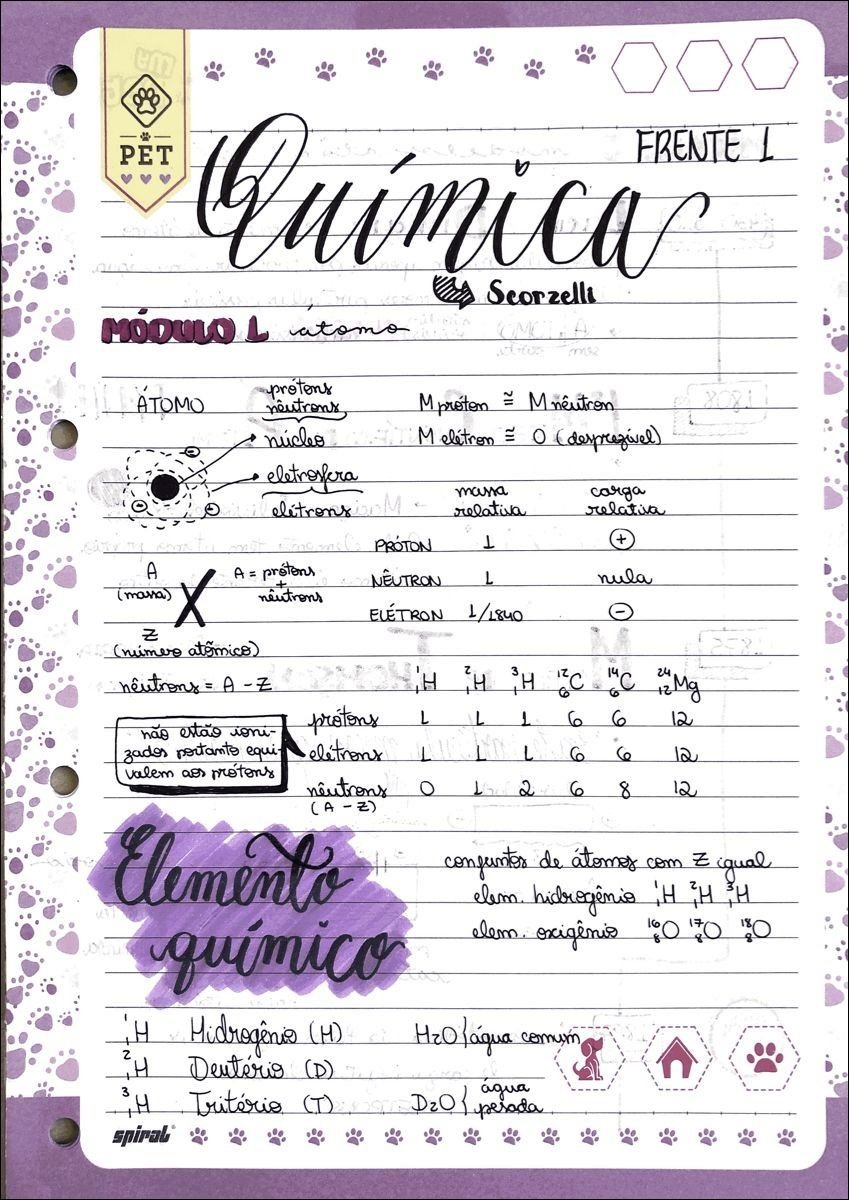 PET
FRENTE 1
Química
Scorzelli
MÓDULO 1 átomo
ÁTOMO
prótons
nêutrons
núcleo
eletrosfera
elétrons
M próton ≅ M nêutron
M elétron ≅ 0 (desprezível)
massa relativa carga relativa
PRÓTON 1 +
NÊUTRON 1 nula
ELÉTRON 1/1840 −
A
(massa)
X
Z
(número atômico)
A = prótons
+
nêutrons
nêutrons = A - Z
¹₁H ²₁H ³₁H ¹²₆C ¹⁴₆C ²⁴₁₂Mg
prótons 1 1 1 6 6 12
elétrons 1 1 1 6 6 12
nêutrons 0 1 2 6 8 12
(A - Z)
não estão ioni-
zados portanto equi-
valem aos prótons
Elemento
químico
conjuntos de átomos com Z igual
elem. hidrogênio ¹₁H ²₁H ³₁H
elem. oxigênio ¹⁶₈O ¹⁷₈O ¹⁸₈O
¹₁H Hidrogênio (H) H₂O } água comum
²₁H Deutério (D)
³₁H Tritério (T) D₂O } água pesada
spiral